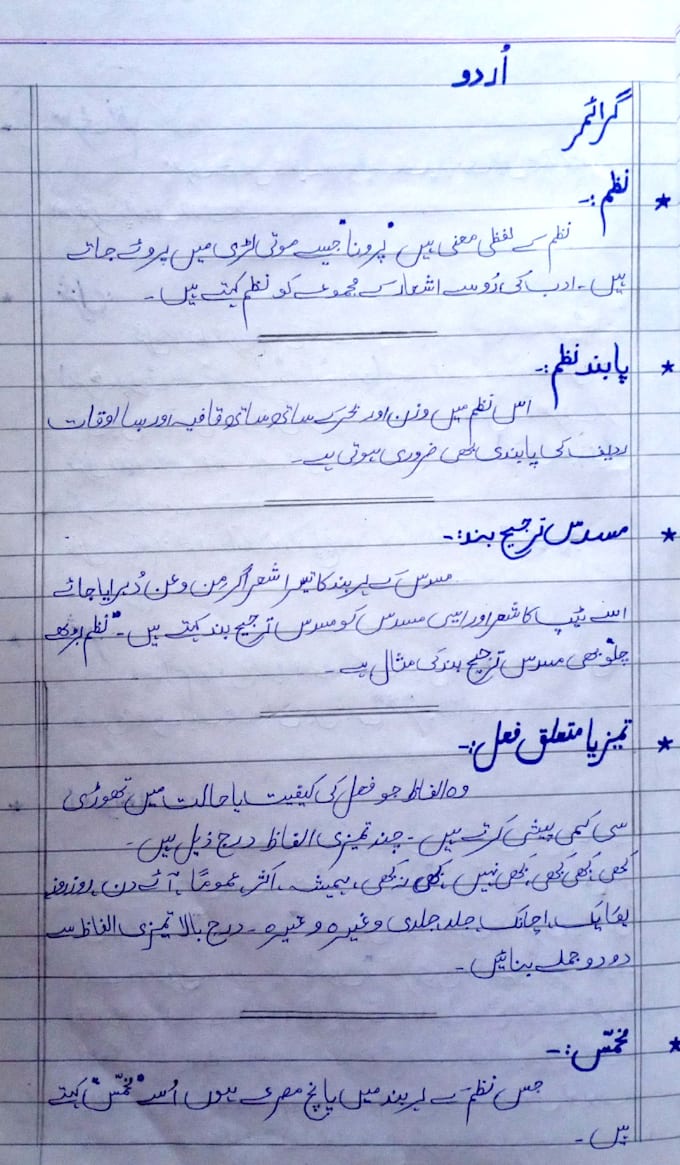 اُردو
گرائمر
* نظم :-
نظم کے لفظی معنی ہیں "پرونا" جیسے موتی لڑی میں پروئے جاتے
ہیں۔ ادب کی رُو سے اشعار کے مجموعے کو نظم کہتے ہیں۔
* پابند نظم :-
اس نظم میں وزن اور بحر کے ساتھ ساتھ قافیہ اور بسا اوقات
ردیف کی پابندی بھی ضروری ہوتی ہے۔
* مسدس ترجیح بند :-
مسدس کے ہر بند کا تیسرا شعر اگر مِن و عن دُہرایا جائے
اسے ٹیپ کا شعر اور ایسی مسدس کو مسدس ترجیح بند کہتے ہیں۔ "نظم بڑھے
چلو" بھی مسدس ترجیح بند کی مثال ہے۔
* تمیز یا متعلق فعل :-
وہ الفاظ جو فعل کی کیفیت یا حالت میں تھوڑی
سی کمی بیشی کرتے ہیں۔ چند تمیزی الفاظ درج ذیل ہیں۔
کبھی، کبھی کبھی، کبھی نہیں، کبھی نہ کبھی، ہمیشہ، اکثر، عموماً، آئے دن، روز روز
یکایک، اچانک، جلد، جلدی وغیرہ وغیرہ۔ درج بالا تمیزی الفاظ سے
دو دو جملے بنائیں۔
* مُخمّس :-
جس نظم کے ہر بند میں پانچ مصرعے ہوں اُسے "مُخمّس" کہتے
ہیں۔